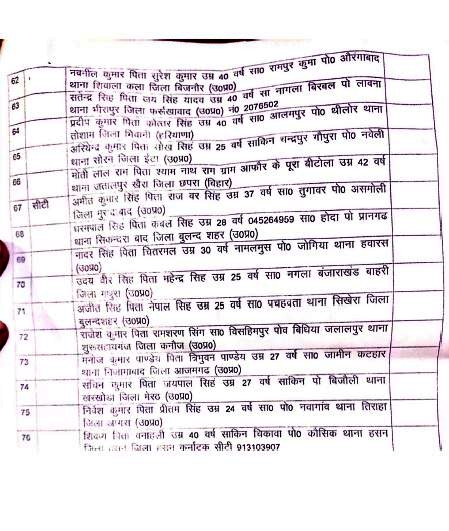 62 नवनील कुमार पिता सुरेश कुमार उम्र 40 वर्ष सा0 रामपुर कुमा पो0 औरंगाबाद
थाना शिवाला कला जिला बिजनौर (उ0प्र0)
63 सतेन्द्र सिंह पिता जय सिंह यादव उम्र 40 वर्ष सा नागला बिरबल पो लावना
थाना भीरापुर जिला फर्रूखाबाद (उ0प्र0) नं0 2076502
64 प्रदीप कुमार पिता सिंह उम्र 40 वर्ष सा0 आलमपुर पो0 थीलोर थाना
तोशाम जिला भिवानी (हरियाणा)
65 कुमार पिता सिंह उम्र 25 वर्ष साकिन चन्दपुर गौपुरा पो0 नवेली
थाना सोरन जिला ईटा (उ0प्र0)
66 मोती लाल राम पिता श्याम नाथ राम ग्राम आफौर के पूरा बीटोला उम्र 42 वर्ष
थाना जतालपुर खैरा जिला छपरा (बिहार)
67 सीटी अमीत कुमार सिंह पिता राज बर सिंह उम्र 37 वर्ष सा0 तुगावर पो0 असमोली
जिला मुरादाबाद (उ0प्र0)
68 धरमपाल सिंह पिता कंवल सिंह उम्र 28 वर्ष 045264959 सा0 होदा पो प्रानगढ
थाना सिकन्दरा बाद जिला बुलन्द शहर (उ0प्र0)
69 नादर सिंह पिता चितरमल उम्र 30 वर्ष नामलमुस पो0 जोगिया थाना हयारस
(उ0प्र0)
70 उदय वीर सिंह पिता महेन्द्र सिंह उम्र 25 वर्ष सा0 नगला बंजाराखंड बाहरी
जिला मथुरा (उ0प्र0)
71 अजीत सिंह पिता नेपाल सिंह उम्र 25 वर्ष सा0 पचहवता थाना सिखेरा जिला
बुलन्दशहर (उ0प्र0)
72 राजेश कुमार पिता रामशरण सिंग सा0 विसहिमपुर पोव बिधिया जलालपुर थाना
जिला कनौज (उ0प्र0)
73 मनोज कुमार पाण्डेय पिता त्रिभुवन पाण्डेय उम्र 27 वर्ष सा0 जामीन कटहार
थाना निजामाबाद जिला आजमगढ (उ0प्र0)
74 सचिन कुमार पिता जयपाल सिंह उम्र 27 वर्ष साकिन पो बिजौली थाना
खरखोदा जिला मेरठ (उ0प्र0)
75 निवेश कुमार पिता प्रीतम सिंह उम्र 24 वर्ष सा0 पो0 नवागांव थाना तिराहा
जिला आगरा (उ0प्र0)
76 पिता उम्र 40 वर्ष साकिन चिकावा पो0 कौसिक थाना हसन
जिला कर्नाटक सीटी 913103907